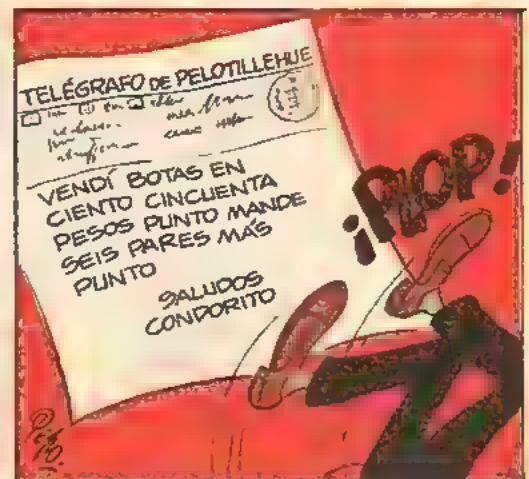 TELÉGRAFO DE PELOTILLEHUE
VENDÍ BOTAS EN
CIENTO CINCUENTA
PESOS PUNTO MANDE
SEIS PARES MÁS
PUNTO
SALUDOS
CONDORITO
¡PLOP!